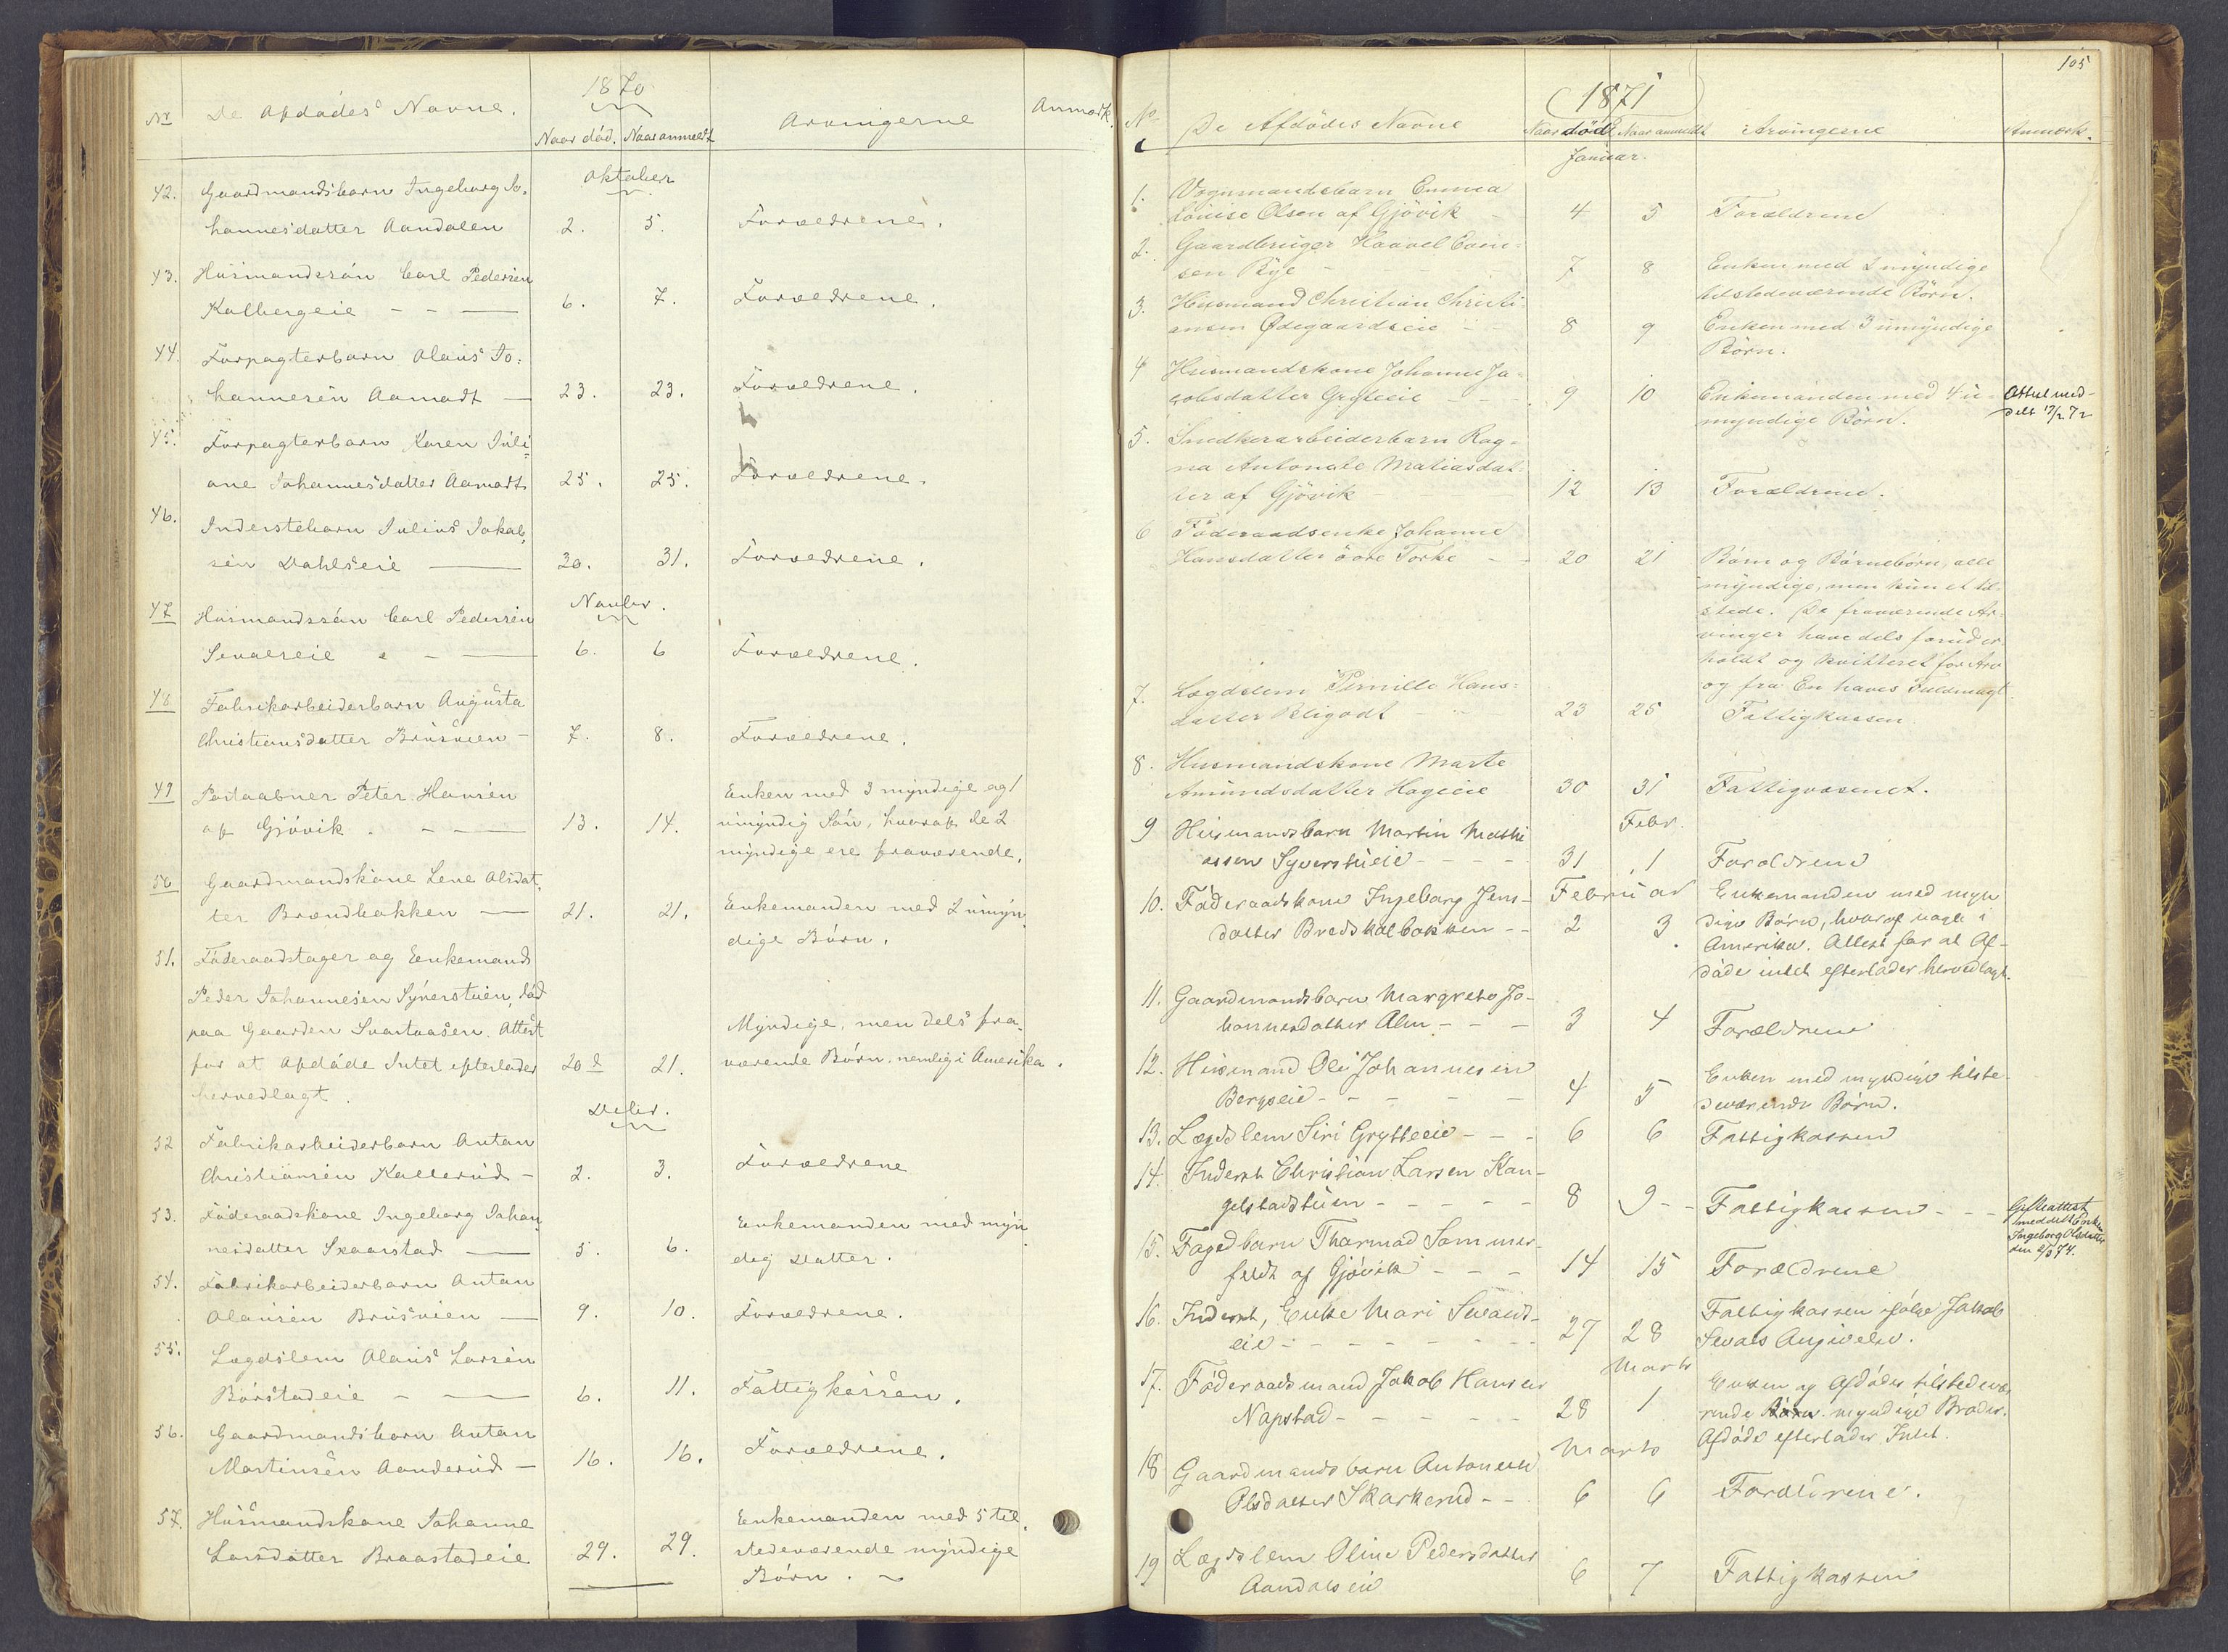 1870
Nr De Afdødes Navne. Naar død. Naar anmeldt Arvingerne Anmærk.
Oktober
42. Gaardmandsbarn Ingeborg Jo-
hannesdatter Aandalen 2. 5. Forældrene.
43. Husmandssøn Carl Pedersen
Kalbergeie - - — 6. 7. Forældrene.
44. Forpagterbarn Olaus Jo:
hannesen Aamodt — 23. 23. Forældrene.
45. Forpagterbarn Karen Juli:
ane Johannesdatter Aamodt 25. 25. Forældrene.
46. Inderstebarn Julius Jakob,
sen Dahlseie — 30. 31. Forældrene.
Novbr.
47 Husmandssøn Carl Pedersen
Sevalseie - — 6. 6 Forældrene.
48 Fabrikarbeiderbarn Augusta
Christiansdatter Brusveen - 7. 8. Forældrene.
49 Postaabner Peter Hansen Enken med 3 myndige og 1
af Gjövik. - - — 13. 14. umyndig Søn, hvoraf de 2
myndige ere fraværende.
50 Gaardmandskone Lene Olsdat,
ter Brændbakken — 21. 21. Enkemanden med 2 umyn,
dige Børn.
51. Føderaadstager og Enkemand
Peder Johannesen Syverstuen, død
paa Gaarden Svartaasen. Attest Myndige, men dels fra,
for at Afdøde Intet efterlader 20de 21. værende Børn, nemlig i Amerika.
hervedlagt.
Decbr.
52 Fabrikarbeiderbarn Anton
Christiansen Kallerud - 2. 3. Forældrene
53. Føderaadskone Ingeborg Johan, Enkemanden med myn,
nesdatter Skaarstad — 5. 6. dig Datter.
54. Fabrikarbeiderbarn Anton
Olausen Brusveen — 9. 10. Forældrene.
55. Lægdslem Olaus Larsen
Børstadeie - — 6. 11. Fattigkassen.
56. Gaardmandsbarn Anton
Martinsen Aanderud — 16. 16. Forældrene.
57. Husmandskone Johanne Enkemanden med 5 til,
Larsdatter Braastadeie 29. 29. stedeværende myndige
Børn.
105
1871
No De Afdødes Navne Naar død Naar anmeldt Arvingerne Anmærk.
Januar.
1. Vognmandsbarn Emma
Louise Olsen af Gjövik 4 5 Forældrene
2. Gaardbruger Haavel Even:
sen Rye - 7 8 Enken med 2 myndige
tilstedeværende Børn.
3. Husmand Christian Christi:
ansen Ødegaardseie 8 9 Enken med 3 umyndige
Børn.
4 Husmandskone Johanne Ja-
cobsdatter Grytteeie 9 10 Enkemanden med 4 u- Attest med-
myndige Børn. delt 17/2 72
5. Snedkerarbeiderbarn Rag-
na Antonette Matiasdat-
ter af Gjövik - 12 13 Forældrene.
6 Føderaadsenke Johanne
Hansdatter övre Torke - 20 21 Børn og Børnebørn, alle
myndige, men kun et til
stede. De fraværende Ar-
vinger have dels forud er-
holdt og kvitteret for Arv
og fra En haves Fuldmagt.
7. Lægdslem Pernille Hans:
datter Bligodt - 23 25 Fattigkassen.
8. Husmandskone Marte
Amundsdatter Hageeie 30 31 Fattigvæsenet.
Febr.
9 Husmandsbarn Martin Mathi
assen Syverstueie - - - 31 1 Forældrene
Februar
10. Føderaadskone Ingeborg Jens- Enkemanden med myn
datter Bredskalbakken - - 2 3 dige Børn, hvoraf nogle i
Amerika. Attest for at Af-
døde intet efterlader hervedlagt.
11. Gaardmandsbarn Margrete Jo-
hannesdatter Alm - - - 3 4 Forældrene
12. Husmand Ole Johannesen Enken med myndige tilste-
Bergseie - - - - - 4 5 deværende Børn.
13. Lægdslem Siri Grytteeie - - - 6 6 Fattigkassen
14. Inderst Christian Larsen Kan-
gelstadstuen - - - - - 8 9 - - Fattigkassen - - - Gifteattest
meddelt Enken
Ingeborg Olsdatter
den 2/3 74.
15. Fogedbarn Thormod Sommer-
feldt af Gjövik - - - 14 15 Forældrene
16. Inderst, Enke Mari Sevals- Fattigkassen ifølge Jakob
eie - - - - - - - 27 28 Sevals Angivelse.
Marts
17. Føderaadsmand Jakob Hansen Enken og Afdødes tilstedevæ
Napstad - - - - - 28 1 rende Børn. myndige Broder.
Afdøde efterlader Intet.
Marts
18 Gaardmandsbarn Antonette
Olsdatter Skarkerud - - 6 6 Forældrene.
19 Lægdslem Oline Pedersdatter
Aandalseie 6 7 Fattigkassen